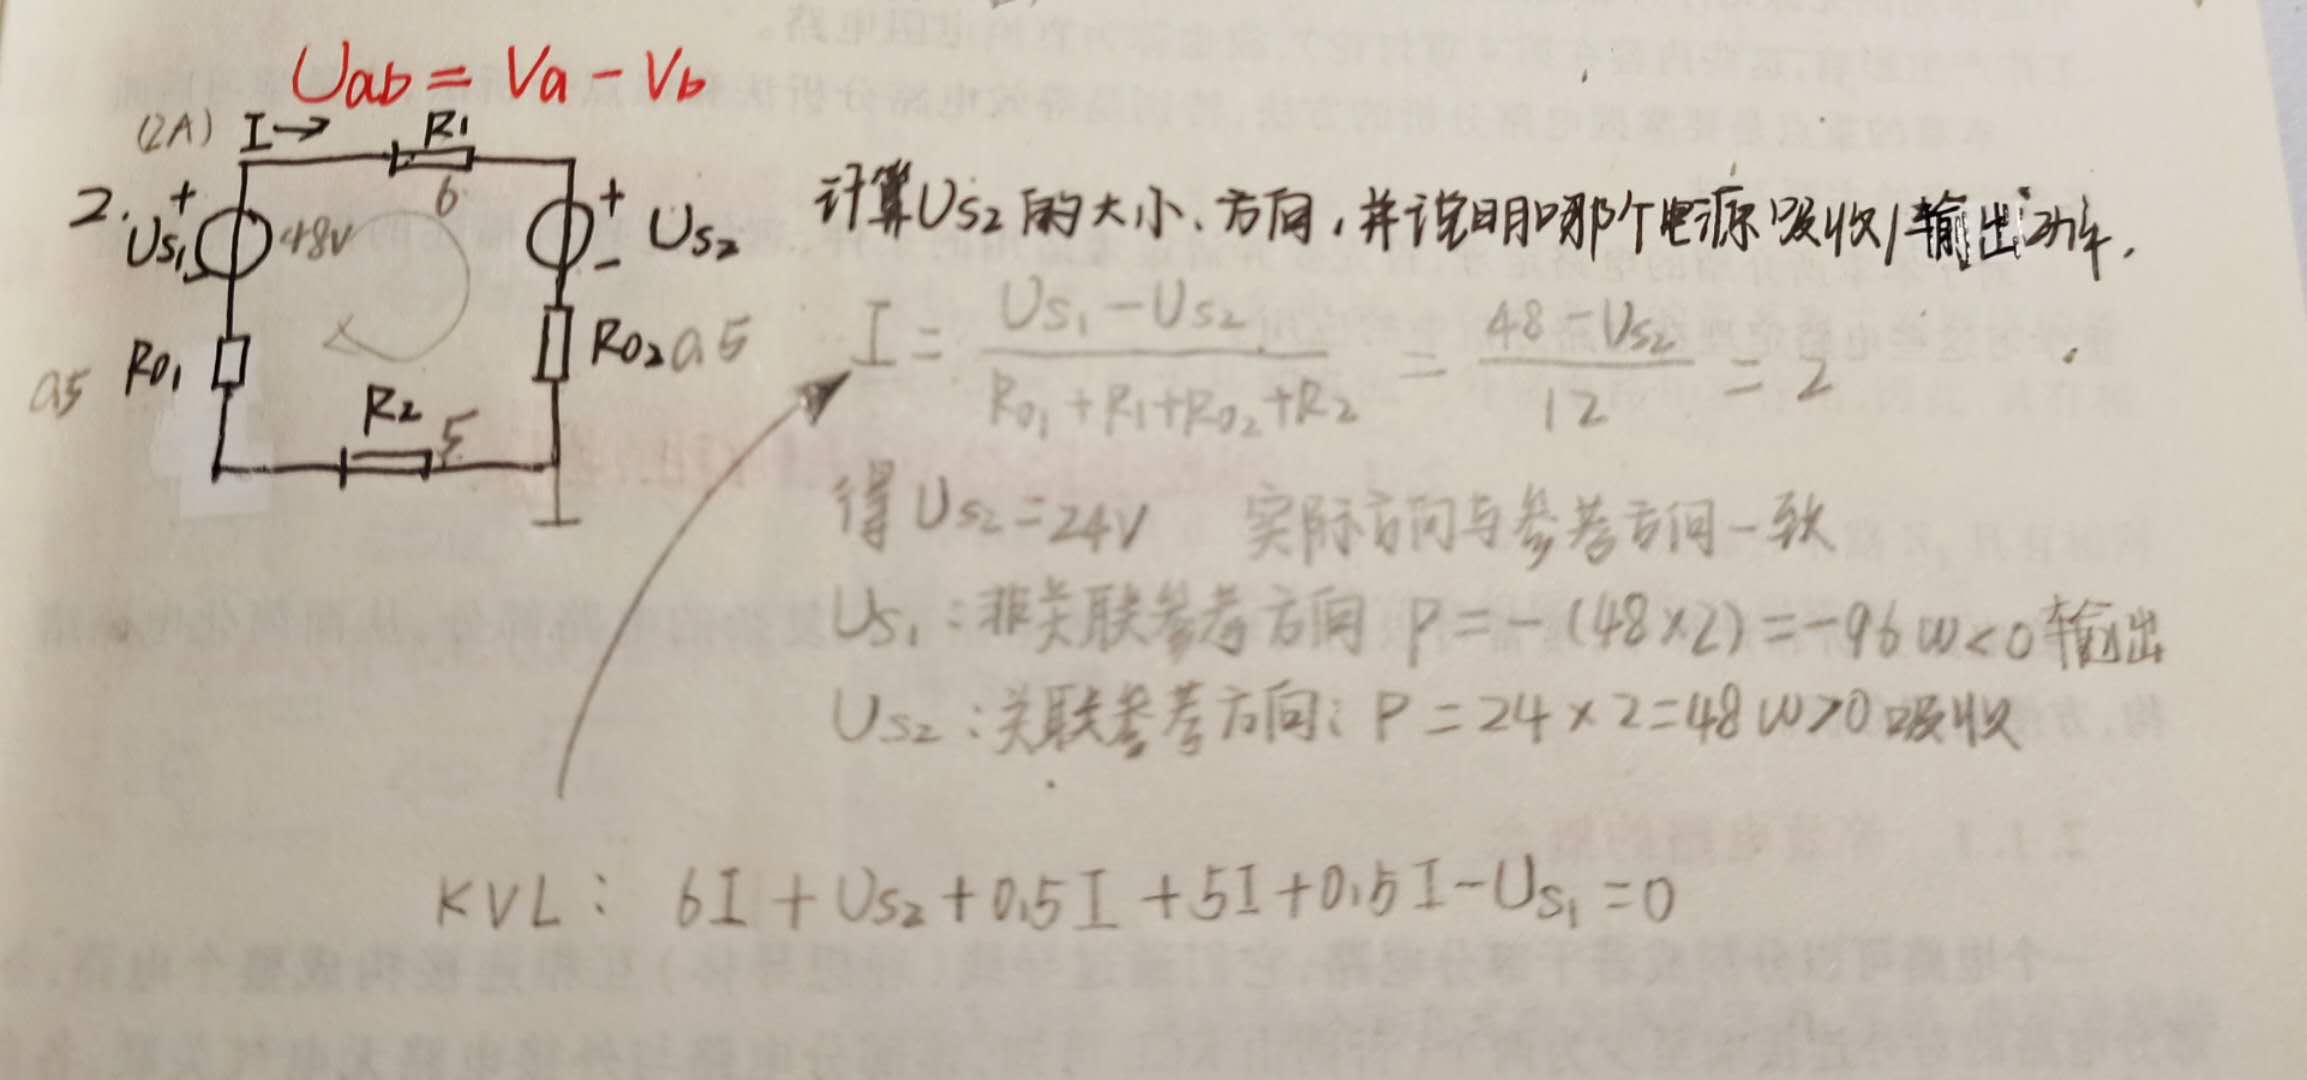 Uab = Va - Vb
(2A) I→ R1
6
2. Us1 + 48V
+ Us2 -
计算Us2的大小、方向,并说明哪个电源吸收/输出功率.
R01 0.5
R02 0.5
R2 5
I = (Us1 - Us2) / (R01 + R1 + R02 + R2) = (48 - Us2) / 12 = 2
得 Us2 = 24V 实际方向与参考方向一致
Us1:非关联参考方向 P = -(48×2) = -96W<0 输出
Us2:关联参考方向: P = 24×2=48W>0 吸收
KVL: 6I + Us2 + 0.5I + 5I + 0.5I - Us1 = 0